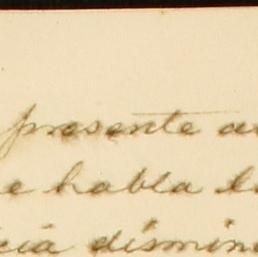 presente a
e habla l
cia dismin